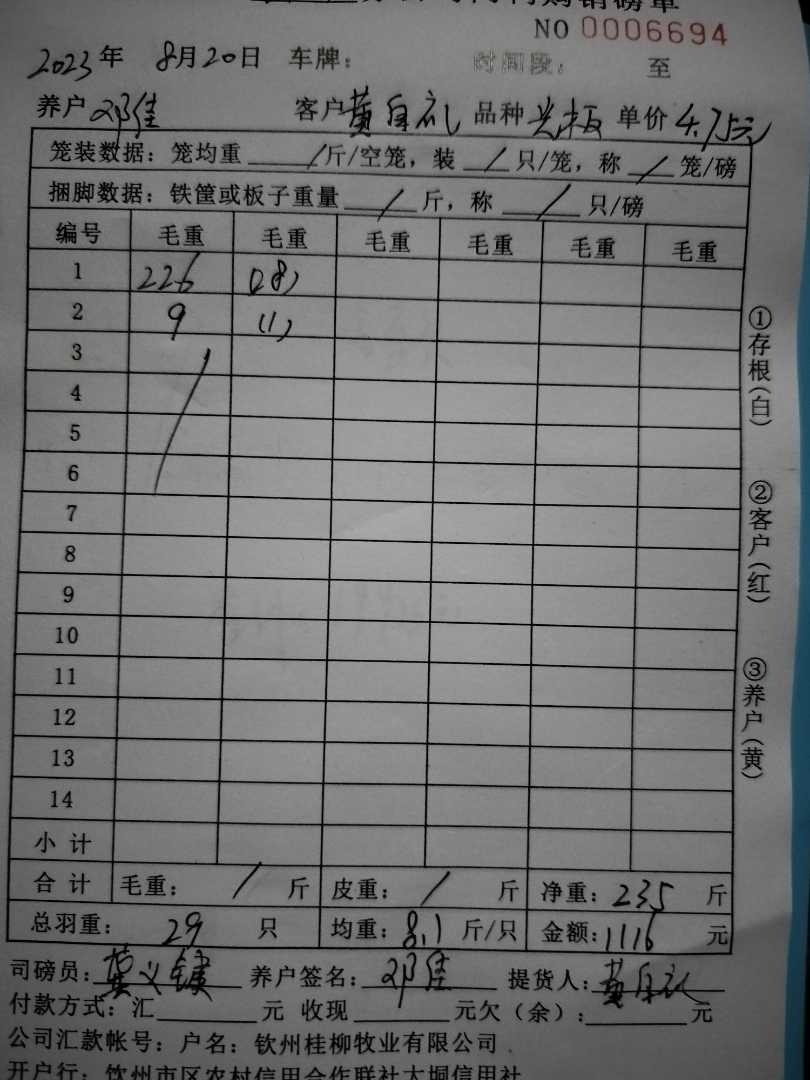 购销磅单
NO 0006694
2023年 8月20日 车牌： 时间段： 至
养户 邓佳 客户 黄自礼 品种 光板 单价 4.75元
笼装数据：笼均重 / 斤/空笼，装 / 只/笼，称 / 笼/磅
捆脚数据：铁筐或板子重量 / 斤，称 / 只/磅
编号 毛重 毛重 毛重 毛重 毛重 毛重
1 226 (28)
2 9 (1)
3
4
5
6
7
8
9
10
11
12
13
14
小计
合计 毛重： / 斤 皮重： / 斤 净重：235 斤
总羽重： 29 只 均重：8.1 斤/只 金额：1116 元
①存根（白）
②客户（红）
③养户（黄）
司磅员： 养户签名：邓佳 提货人：黄自礼
付款方式：汇 元 收现 元欠（余）： 元
公司汇款帐号：户名：钦州桂柳牧业有限公司
开户行：钦州市区农村信用合作联社大垌信用社